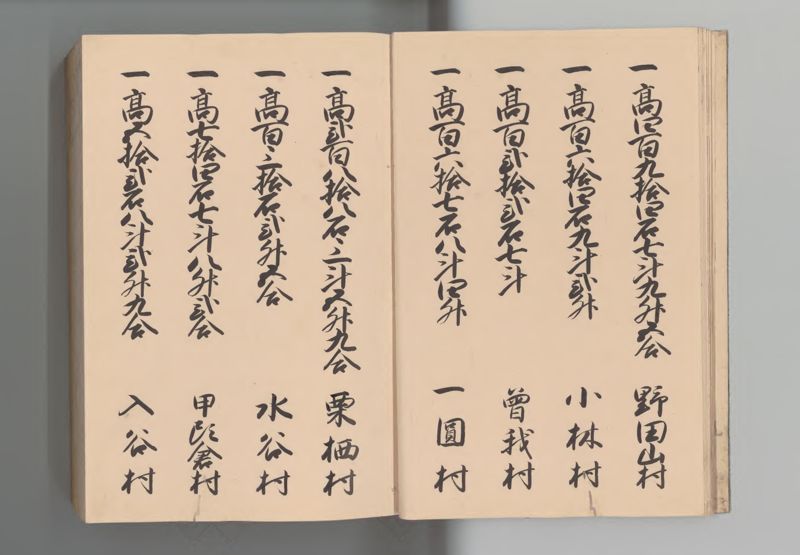 一高四百九拾四石七斗九升五合 野田山村
一高百六拾四石九斗弐升 小林村
一高百弐拾弐石七斗 曽我村
一高百六拾七石八斗四升 一圓村
一高弐百八拾八石三斗五升九合 栗栖村
一高百三拾石弐升五合 水谷村
一高七拾四石七斗八升弐合 甲頭倉村
一高五拾弐石八斗弐升九合 入谷村